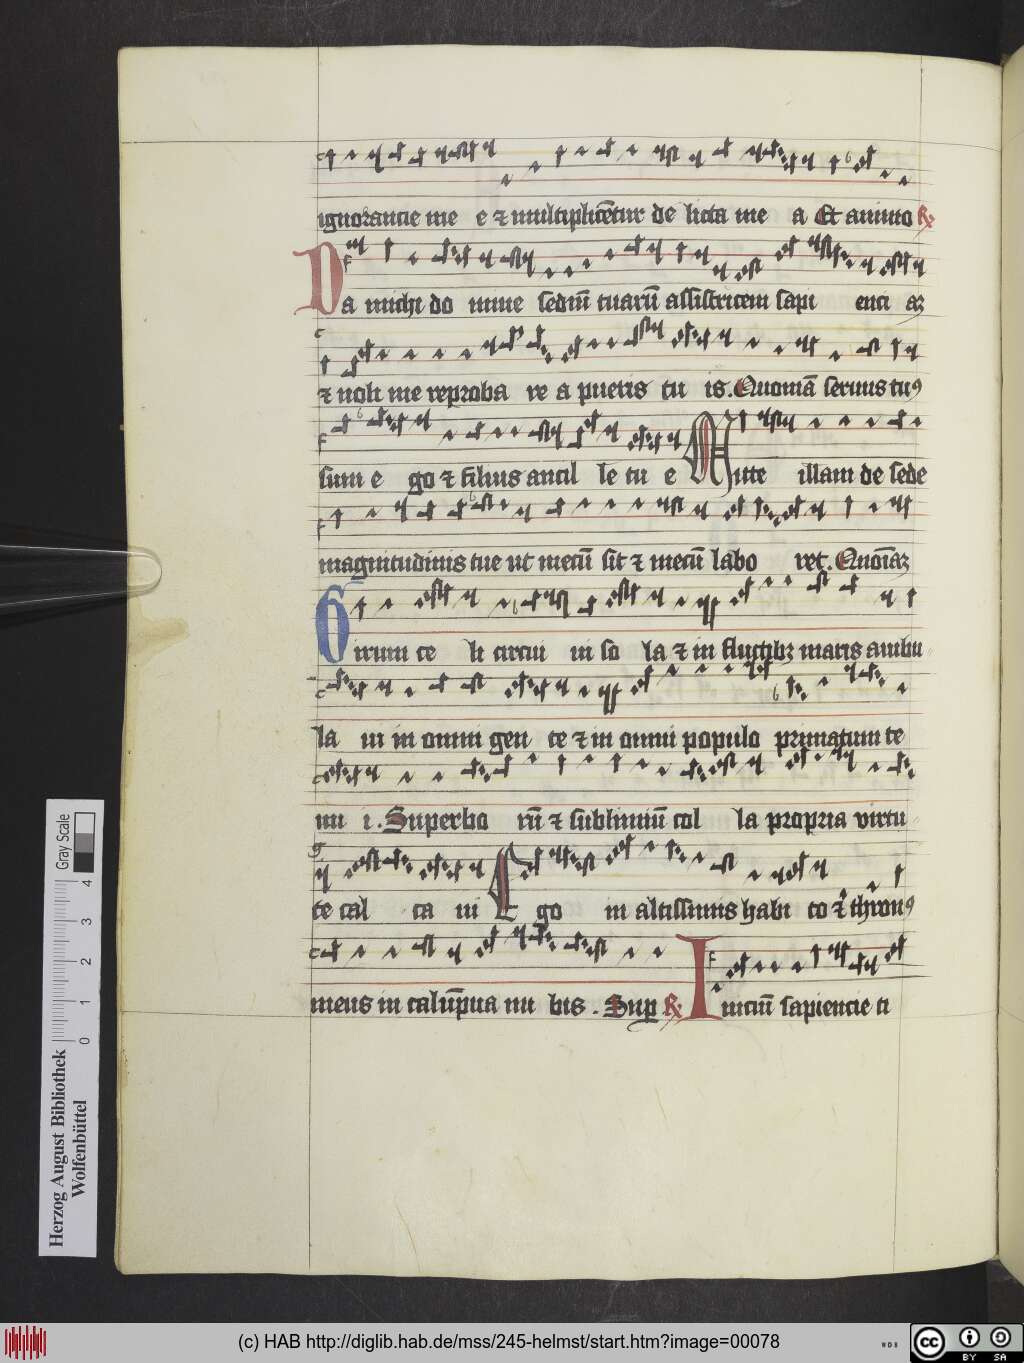 ignorancie me e ⁊ multiplicētur de licta me a Et animo ℟
Da michi do mine sediū tuarū assistricem sapi enci aꝫ
⁊ noli me reproba re a pueris tu is. Quoniā seruus tuꝰ
sum e go ⁊ filius ancil le tu e Mitte illam de sede
magnitudinis tue ut mecū sit ⁊ mecū labo ret. Quoīaꝫ
Girum ce li circui ui so la ⁊ in fluctibꝫ maris ambu
la ui in omni gen te ⁊ in omni populo primatum te
nu i. Superbo rū ⁊ sublimiū col la propria virtu
te cal ca ui Ego in altissimis habi to ⁊ thronꝰ
meus in calūpna nu bis. Sup ℟ Iniciū sapiencie ti
Herzog August Bibliothek
Wolfenbüttel
0 1 2 3 4
Gray Scale
(c) HAB http://diglib.hab.de/mss/245-helmst/start.htm?image=00078
WDB
cc BY SA